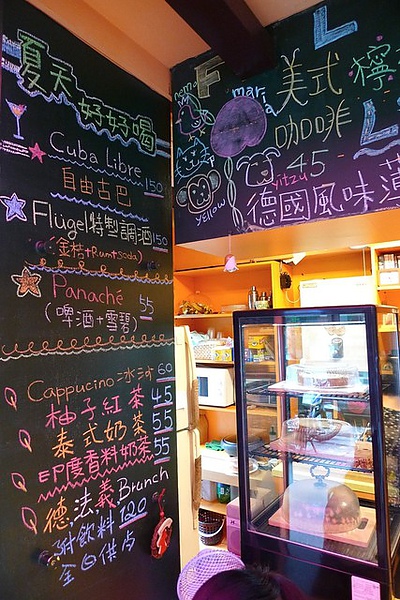 夏天好好喝
Cuba Libre
自由古巴 150
Flügel特製調酒 150
(金桔+Rum+Soda)
Panaché 55
(啤酒+雪碧)
Cappucino冰沙 60
柚子紅茶 45
泰式奶茶 55
印度香料奶茶 55
德,法,義Brunch
附飲料 120
全日供應
F
L
maria
美式
咖啡
45
檸
L
yellow
yitzu
德國風味薄